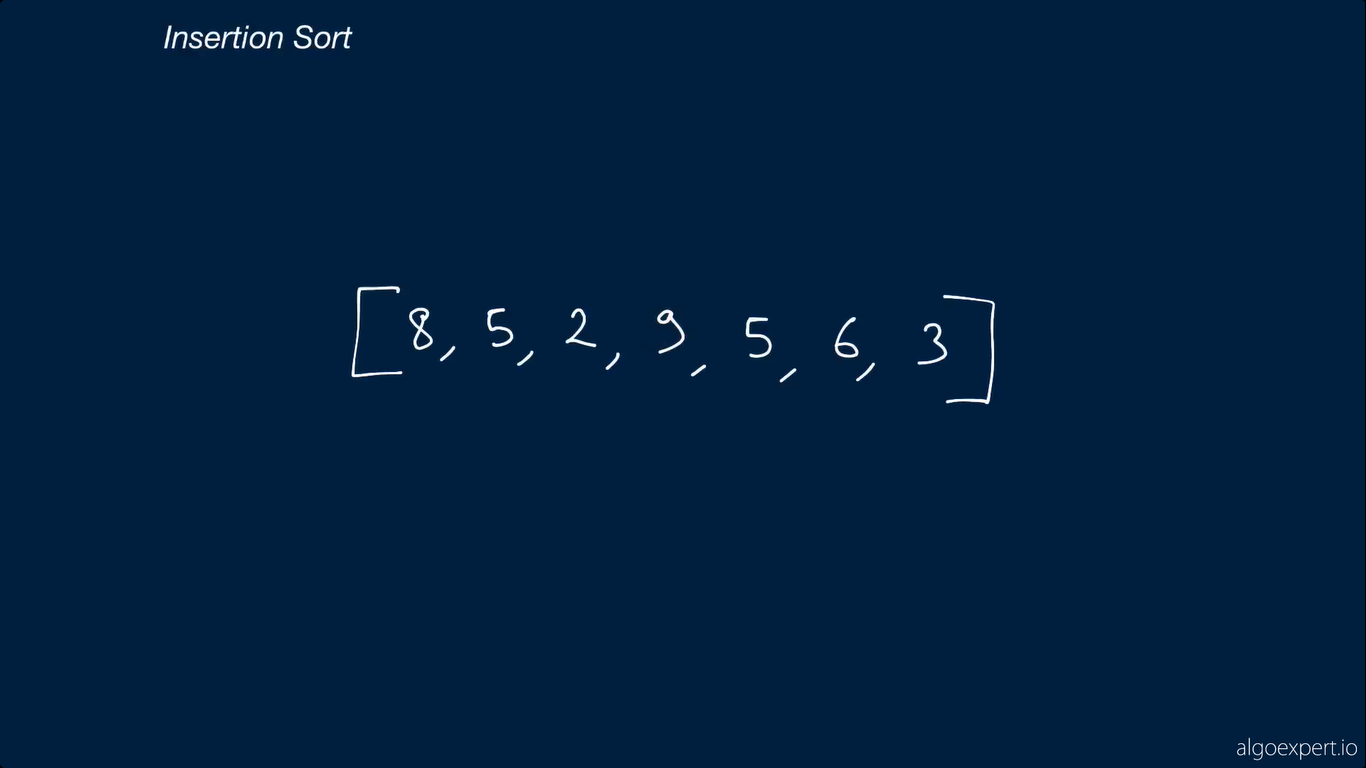 Insertion Sort
[8, 5, 2, 9, 5, 6, 3]
algoexpert.io